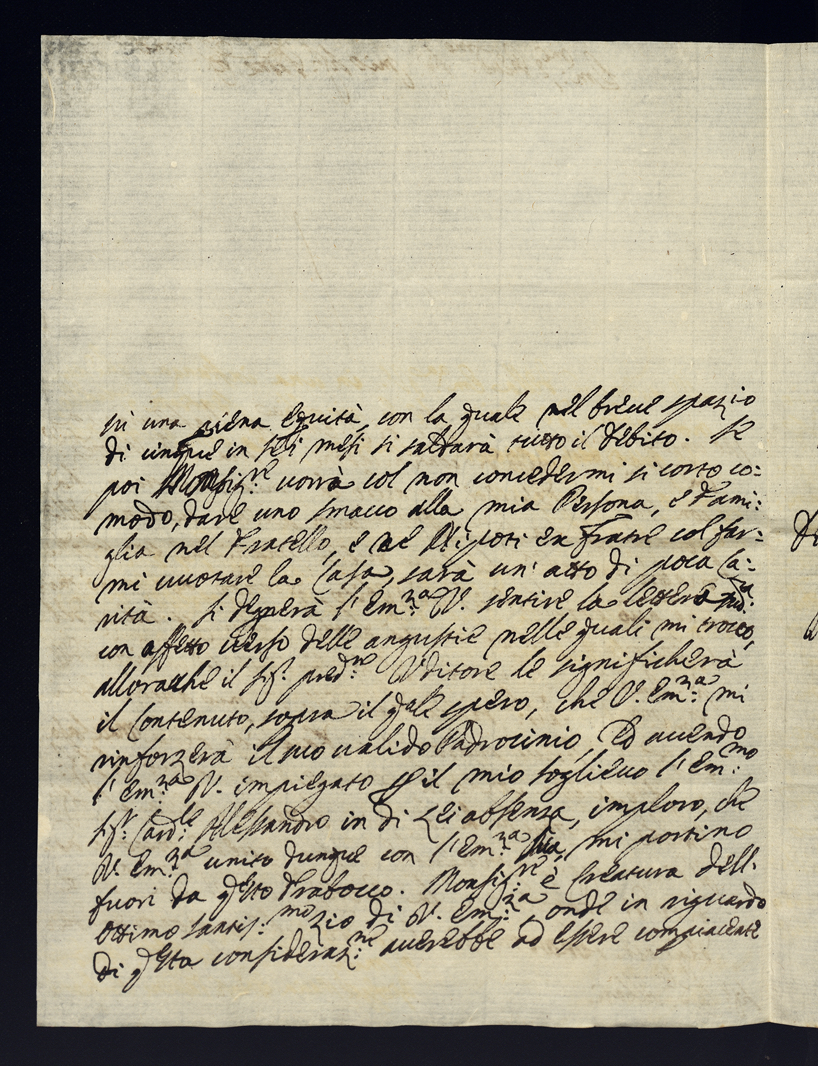 in una piena equità, con la quale nel breve spazio
di cinque in sei mesi si saldarà tutto il debito. Se
poi Monsig:re vorrà col non concedermi sì corto co:
modo, dare uno smacco alla mia Persona, e Fami:
glia nel Fratello, e ne Nipoti ex Fratre col far:
mi vuotare la Casa, sarà un' atto di poca Ca:
rità. Si degnerà l'Em:za V. sentire la lettera
con affetto verso delle angustie nelle quali mi trovo,
alloraché il Sig:r pred:o Uditore le significherà
il contenuto, sopra il quale spero, che V. Em:za mi
rinforzerà il suo valido Padrocinio, Ed avendo
l'Em:za V. impiegato per il mio sollievo l'Em:mo
Sig:r Card:le Alessandro in di Lei absenza, imploro, che
V. Em:za unito dunque con l'Em:za Sua, mi portino
fuori da questo Trabocco. Monsig:re è Creatura dell'
Ottimo Santis:mo Zio di V. Em:za, onde in riguardo
di questa consideraz:ne averebbe ad essere compiacente